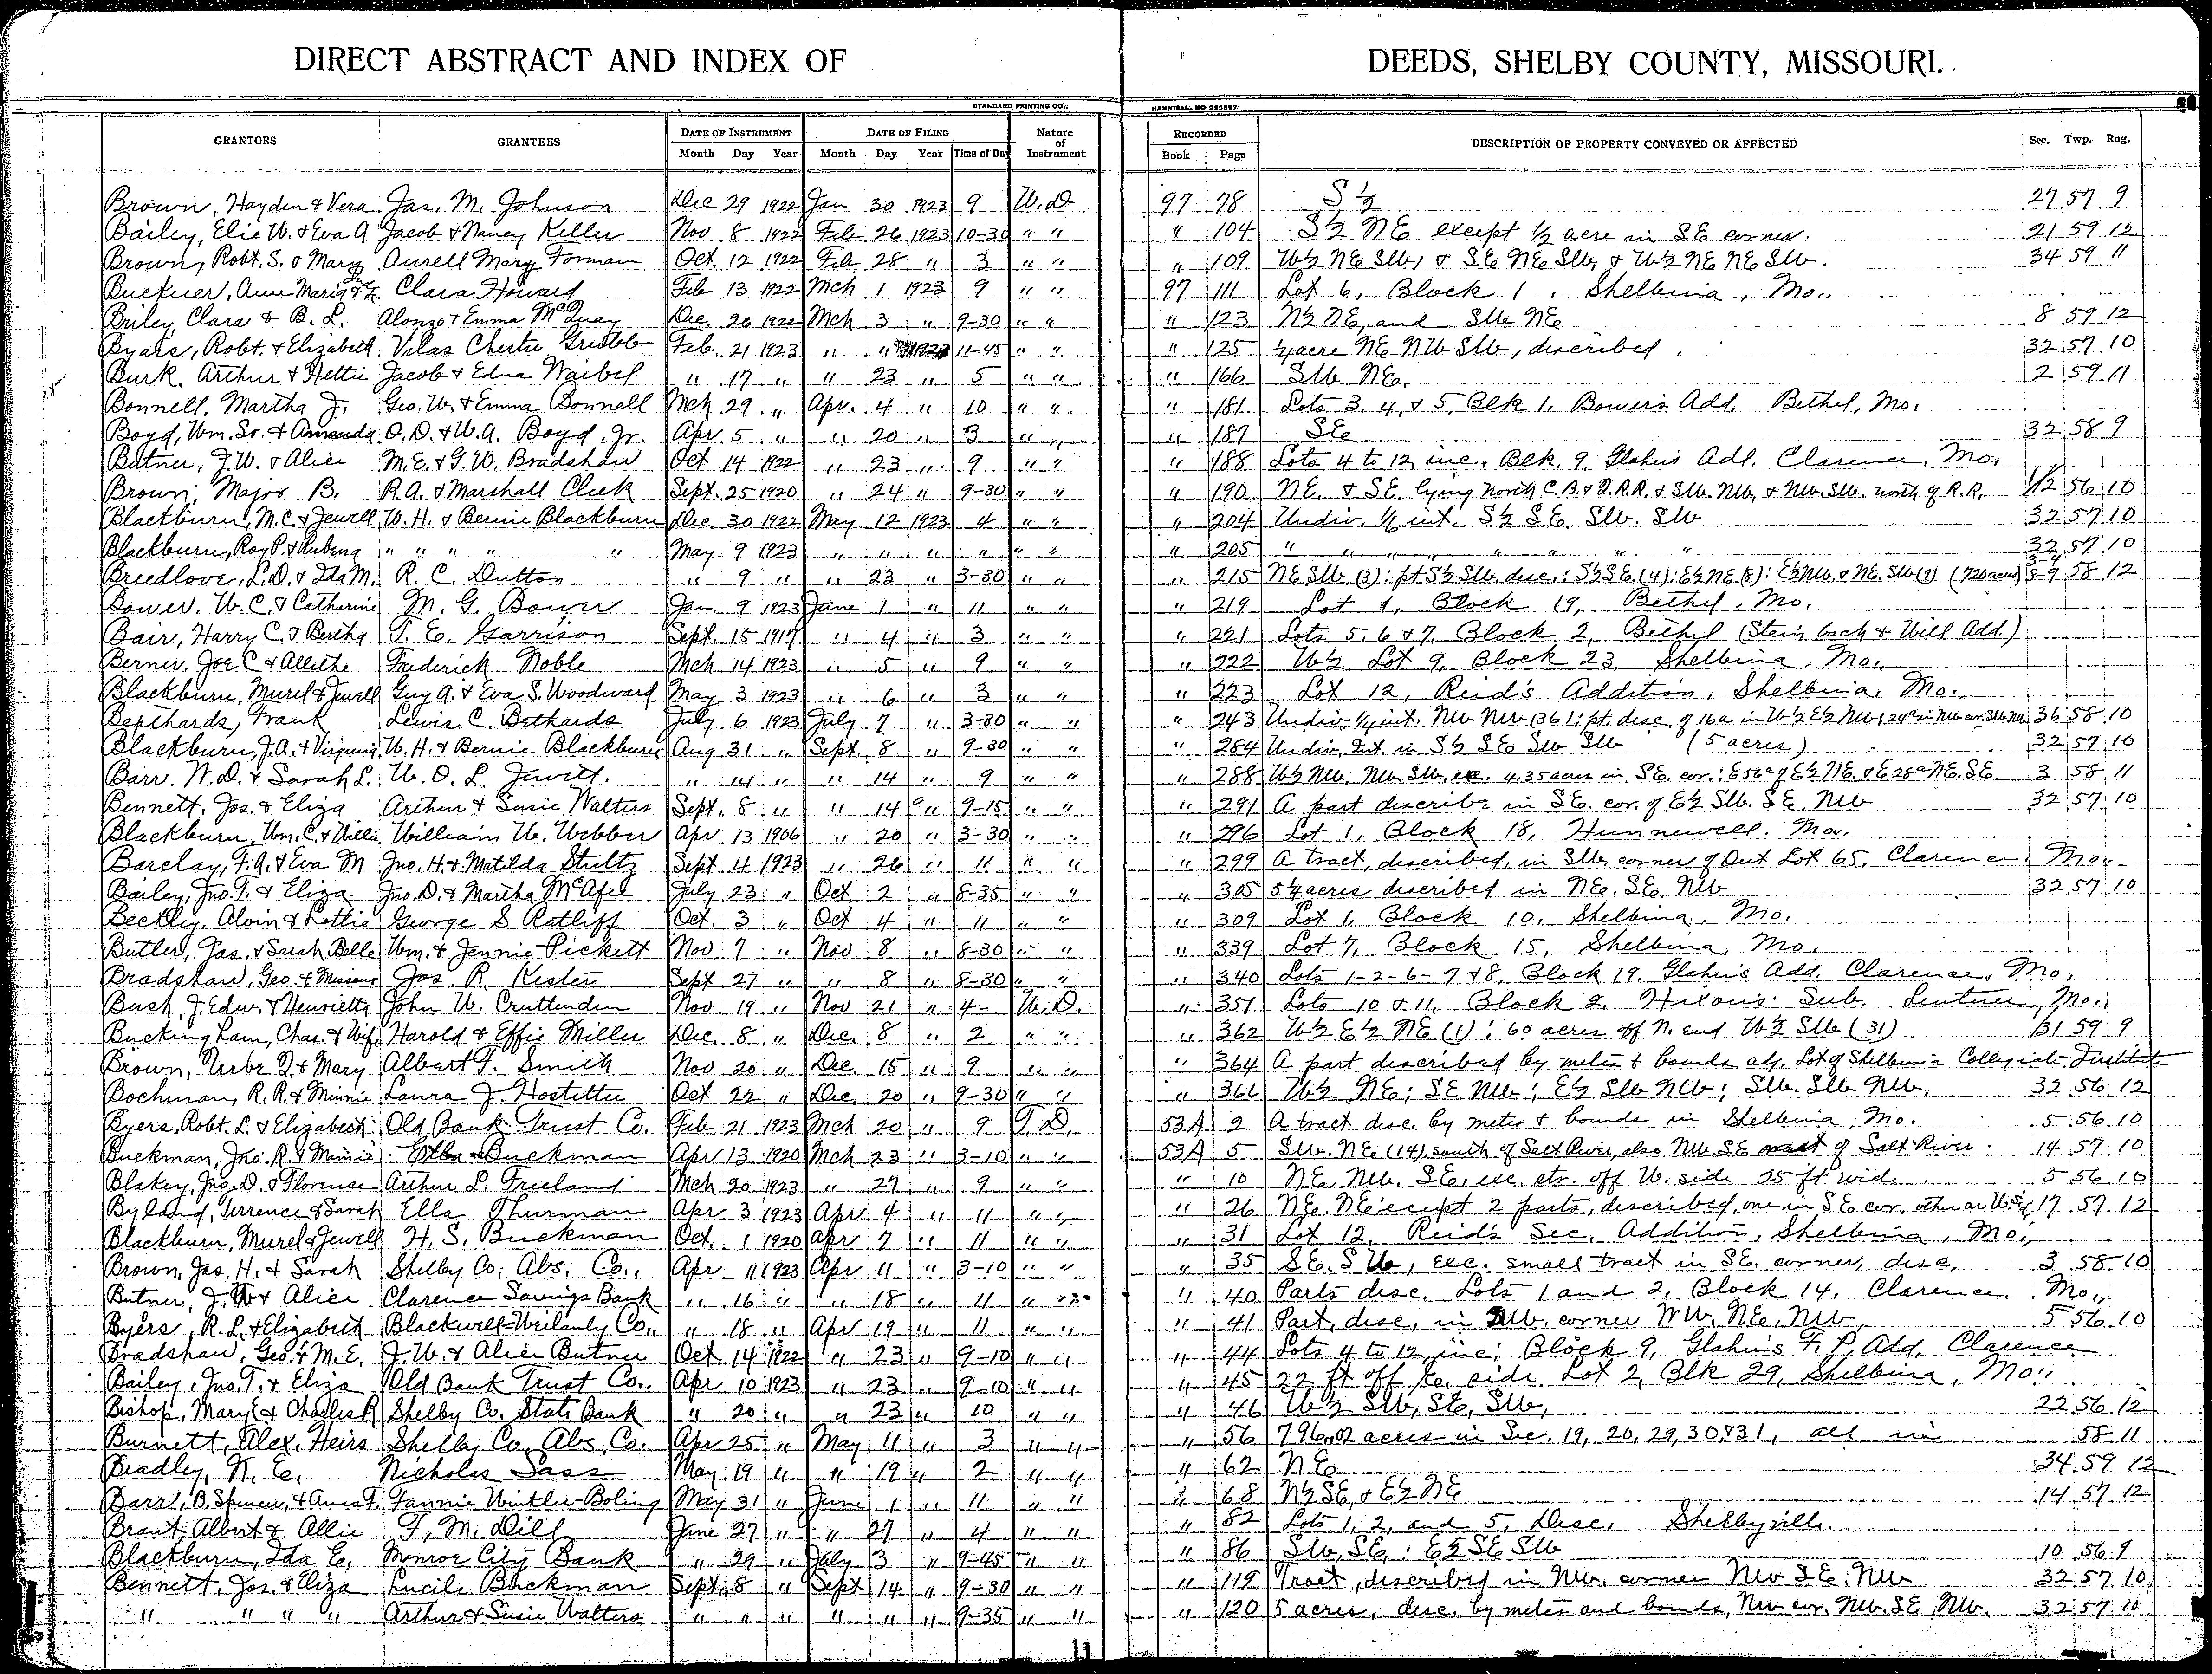 DIRECT ABSTRACT AND INDEX OF DEEDS, SHELBY COUNTY, MISSOURI.
STANDARD PRINTING CO., HANNIBAL, MO 255697
GRANTORS GRANTEES DATE OF INSTRUMENT DATE OF FILING Nature of Instrument RECORDED DESCRIPTION OF PROPERTY CONVEYED OR AFFECTED Sec. Twp. Rng.
Month Day Year Month Day Year Time of Day Book Page
Brown, Hayden & Vera Jas. M. Johnson Dec 29 1922 Jan 30 1923 9 W.D 97 78 S½ 27 57 9
Bailey, Elie W. & Eva A Jacob & Nancy Keller Nov 8 1922 Feb 26 1923 10-30 " " " 104 S½ NE except ½ acre in SE corner. 21 59 12
Brown, Robt. S. & Mary Aurell Mary Forman Oct. 12 1922 Feb 28 " 3 " " " 109 W½ NE SW, & SE NE SW, & W½ NE NE SW. 34 59 11
Buckner, Anne Maria Clara Howard Feb 13 1922 Mch 1 1923 9 " " 97 111 Lot 6, Block 1, Shelbina, Mo..
Briley, Clara & B. L. Alonzo & Emma McQuay Dec. 26 1922 Mch 3 " 9-30 " " " 123 N½ NE, and SW NE 8 59 12
Byars, Robt. & Elizabeth Velas Chester Gribble Feb. 21 1923 " " 1923 11-45 " " " 125 ¼ acre NE NW SW, described. 32 57 10
Burk, Arthur & Hettie Jacob & Edna Waibel " 17 " " 23 " 5 " " " 166 SW NE. 2 59 11
Bonnell, Martha J. Geo. W. & Emma Bonnell Mch 29 " Apr. 4 " 10 " " " 181 Lots 3, 4, & 5, Blk 1, Bower's Add. Bethel, Mo.
Boyd, Wm. Sr. & Amanda O. D. & W. A. Boyd, Jr. Apr. 5 " " 20 " 3 " " " 187 SE 32 58 9
Butner, J. W. & Alice M. E. & G. W. Bradshaw Oct 14 1922 " 23 " 9 " " " 188 Lots 4 to 12, inc., Blk. 9, Glahn's Add. Clarence, Mo.
Brown, Major B. R. A. & Marshall Cleek Sept. 25 1920 " 24 " 9-30 " " " 190 NE. & SE. lying north C. B. & Q. R.R. & SW. NW, & NW. SW. north of R.R. 1/12 56 10
Blackburn, M. C. & Jewell W. H. & Bernie Blackburn Dec. 30 1922 May 12 1923 4 " " " 204 Undiv. 1/6 int. S½ SE. SW. SW 32 57 10
Blackburn, Roy P. & Rubena " " " " " May 9 1923 " " " " " " " 205 " " " " " " " 32 57 10
Breedlove, L. D. & Ida M. R. C. Dutton " 9 " " 23 " 3-30 " " " 215 NE SW. (3): pt S½ SW. desc.: S½ SE. (4): E½ NE. (8): E½ NW. & NE. SW. (9) (720 acres) 3-4 8-9 58 12
Bower, W. C. & Catherine M. G. Bower Jan. 9 1923 June 1 " 11 " " " 219 Lot 1, Block 19, Bethel, Mo.
Bair, Harry C. & Bertha T. E. Garrison Sept. 15 1917 " 4 " 3 " " " 221 Lots 5, 6 & 7, Block 2, Bethel (Steinbach & Will Add.)
Berner, Joe C & Allethe Frederick Noble Mch 14 1923 " 5 " 9 " " " 222 W½ Lot 9, Block 23, Shelbina, Mo..
Blackburn, Murel & Jewell Guy A. & Eva S. Woodward May 3 1923 " 6 " 3 " " " 223 Lot 12, Reid's Addition, Shelbina, Mo..
Bepthards, Frank Lewis C. Bethards July 6 1923 July 7 " 3-30 " " " 243 Undiv. ¼ int. NW NW (36); pt. desc. of 16a in W½ E½ NW; 24a in NW cor. SW NW. 36 58 10
Blackburn, J. A. & Virginia W. H. & Bernie Blackburn Aug 31 " Sept. 8 " 9-30 " " " 284 Undiv. Int in S½ SE SW SW (5 acres) 32 57 10
Barr, N. D. & Sarah L. W. O. L. Jewett. " 14 " " 14 " 9 " " " 288 W½ NW, NW. SW, ex. 4.35 acres in SE. cor.: E 56a of E½ NE. & E 28a NE. SE. 3 58 11
Bennett, Jos. & Eliza Arthur & Susie Walters Sept. 8 " " 14 " 9-15 " " " 291 A part describe in SE. cor. of E½ SW. SE. NW 32 57 10
Blackburn, Wm. C. & Willie William W. Webber Apr 13 1906 " 20 " 3-30 " " " 296 Lot 1, Block 18, Hunnewell, Mo.
Barclay, F. A. & Eva M Jno. H. & Matilda Stultz Sept. 4 1923 " 26 " 11 " " " 299 A tract, described, in SW. corner of Out Lot 65, Clarence, Mo..
Bailey, Jno. T. & Eliza Jno. D. & Martha McAfee July 23 " Oct 2 " 8-35 " " " 305 5¼ acres described in NE. SE. NW 32 57 10
Beckley, Alvin & Lottie George S Ratliff Oct. 3 " Oct 4 " 11 " " " 309 Lot 1, Block 10, Shelbina, Mo.
Butler, Jas. & Sarah Belle Wm. & Jennie Pickett Nov 7 " Nov 8 " 8-30 " " " 339 Lot 7, Block 15, Shelbina, Mo.
Bradshaw, Geo. & Missouri Jos. R. Kester Sept 27 " " 8 " 8-30 " " " 340 Lots 1-2-6-7 & 8, Block 19, Glahn's Add. Clarence, Mo.
Bush, J. Edw. & Henrietta John W. Cruttenden Nov. 19 " Nov 21 " 4- W. D. " 351 Lots 10 & 11, Block 2, Hixon's Sub. Lentner, Mo..
Buckingham, Chas. & Wife Harold & Effie Miller Dec. 8 " Dec. 8 " 2 " " " 362 W½ E½ NE (1); 60 acres off N. end W½ SW (31) 31 59 9
Brown, Urbe D. & Mary Albert F. Smith Nov 20 " Dec. 15 " 9 " " " 364 A part described by metes & bounds adj. Lot of Shelbina Collegiate Institute
Bochman, R. R. & Minnie Laura J. Hostetter Oct 22 " Dec. 20 " 9-30 " " " 366 W½ NE; SE NW; E½ SW NW; SW. SW NW. 32 56 12
Byers, Robt. L. & Elizabeth Old Bank Trust Co. Feb 21 1923 Mch 20 " 9 T. D. 53A 2 A tract desc. by metes & bounds in Shelbina, Mo. 5 56 10
Buckman, Jno. R. & Mamie Elba Buckman Apr 13 1920 Mch 23 " 3-10 " " 53A 5 SW. NE (14) south of Salt River, also NW. SE of Salt River. 14 57 10
Blakey, Jno. D. & Florence Arthur L. Freeland Mch 20 1923 " 27 " 9 " " " 10 NE. NW. SE, exc. str. off W. side 25 ft wide 5 56 10
Byland, Terrence & Sarah Ella Thurman Apr. 3 1923 Apr. 4 " 11 " " " 26 NE. NE except 2 parts, described, one in SE cor. other on W. side 17 57 12
Blackburn, Murel & Jewell H. S. Buckman Oct. 1 1920 Apr 7 " 11 " " " 31 Lot 12, Reid's Sec. Addition, Shelbina, Mo.,
Brown, Jas. H. & Sarah Shelby Co. Abs. Co., Apr 11 1923 Apr 11 " 3-10 " " " 35 SE. SW, exc. small tract in SE. corner, desc. 3 58 10
Butner, J. W. & Alice Clarence Savings Bank " 16 " " 18 " 11 " " " 40 Parts desc. Lots 1 and 2, Block 14, Clarence, Mo.,
Byers, R. L. & Elizabeth Blackwell-Weilanly Co., " 18 " Apr 19 " 11 " " " 41 Part, desc, in corner NW. NE, NW, 5 56 10
Bradshaw, Geo. & M. E. J. W. & Alice Butner Oct 14 1922 " 23 " 9-10 " " " 44 Lots 4 to 12, inc; Block 9, Glahn's F. P. Add. Clarence
Bailey, Jno. T. & Eliza Old Bank Trust Co.. Apr 10 1923 " 23 " 9-10 " " " 45 22 ft off side Lot 2, Blk 29, Shelbina, Mo.,
Bishop, Mary E & Charles R Shelby Co. State Bank " 20 " " 23 " 10 " " " 46 W½ SW, SE, SW, 22 56 12
Burnett, Alex, Heirs Shelby Co. Abs. Co. Apr 25 " May 11 " 3 " " " 56 796.02 acres in Sec. 19, 20, 29, 30, & 31, all in 58 11
Bradley, N. E. Nicholas Sass May 19 " " 19 " 2 " " " 62 NE 34 59 12
Barr, B. Spencer, & Anna F. Fannie Wintler-Boling May 31 " June 1 " 11 " " " 68 N½ SE, & E½ NE 14 57 12
Brant, Albert & Allie F. M. Dill June 27 " " 27 " 4 " " " 82 Lots 1, 2, and 5, Desc. Shelbyville.
Blackburn, Ida E, Monroe City Bank " 29 " July 3 " 9-45 " " " 86 SW, SE; E½ SE SW 10 56 9
Bennett, Jos. & Eliza Lucile Buckman Sept. 8 " Sept 14 " 9-30 " " " 119 Tract, described in NW. corner NW SE. NW 32 57 10
" " " " Arthur & Susie Walters " " " " " " 9-35 " " " 120 5 acres, desc. by metes and bounds, NW cor. NW. SE, NW. 32 57 10
11